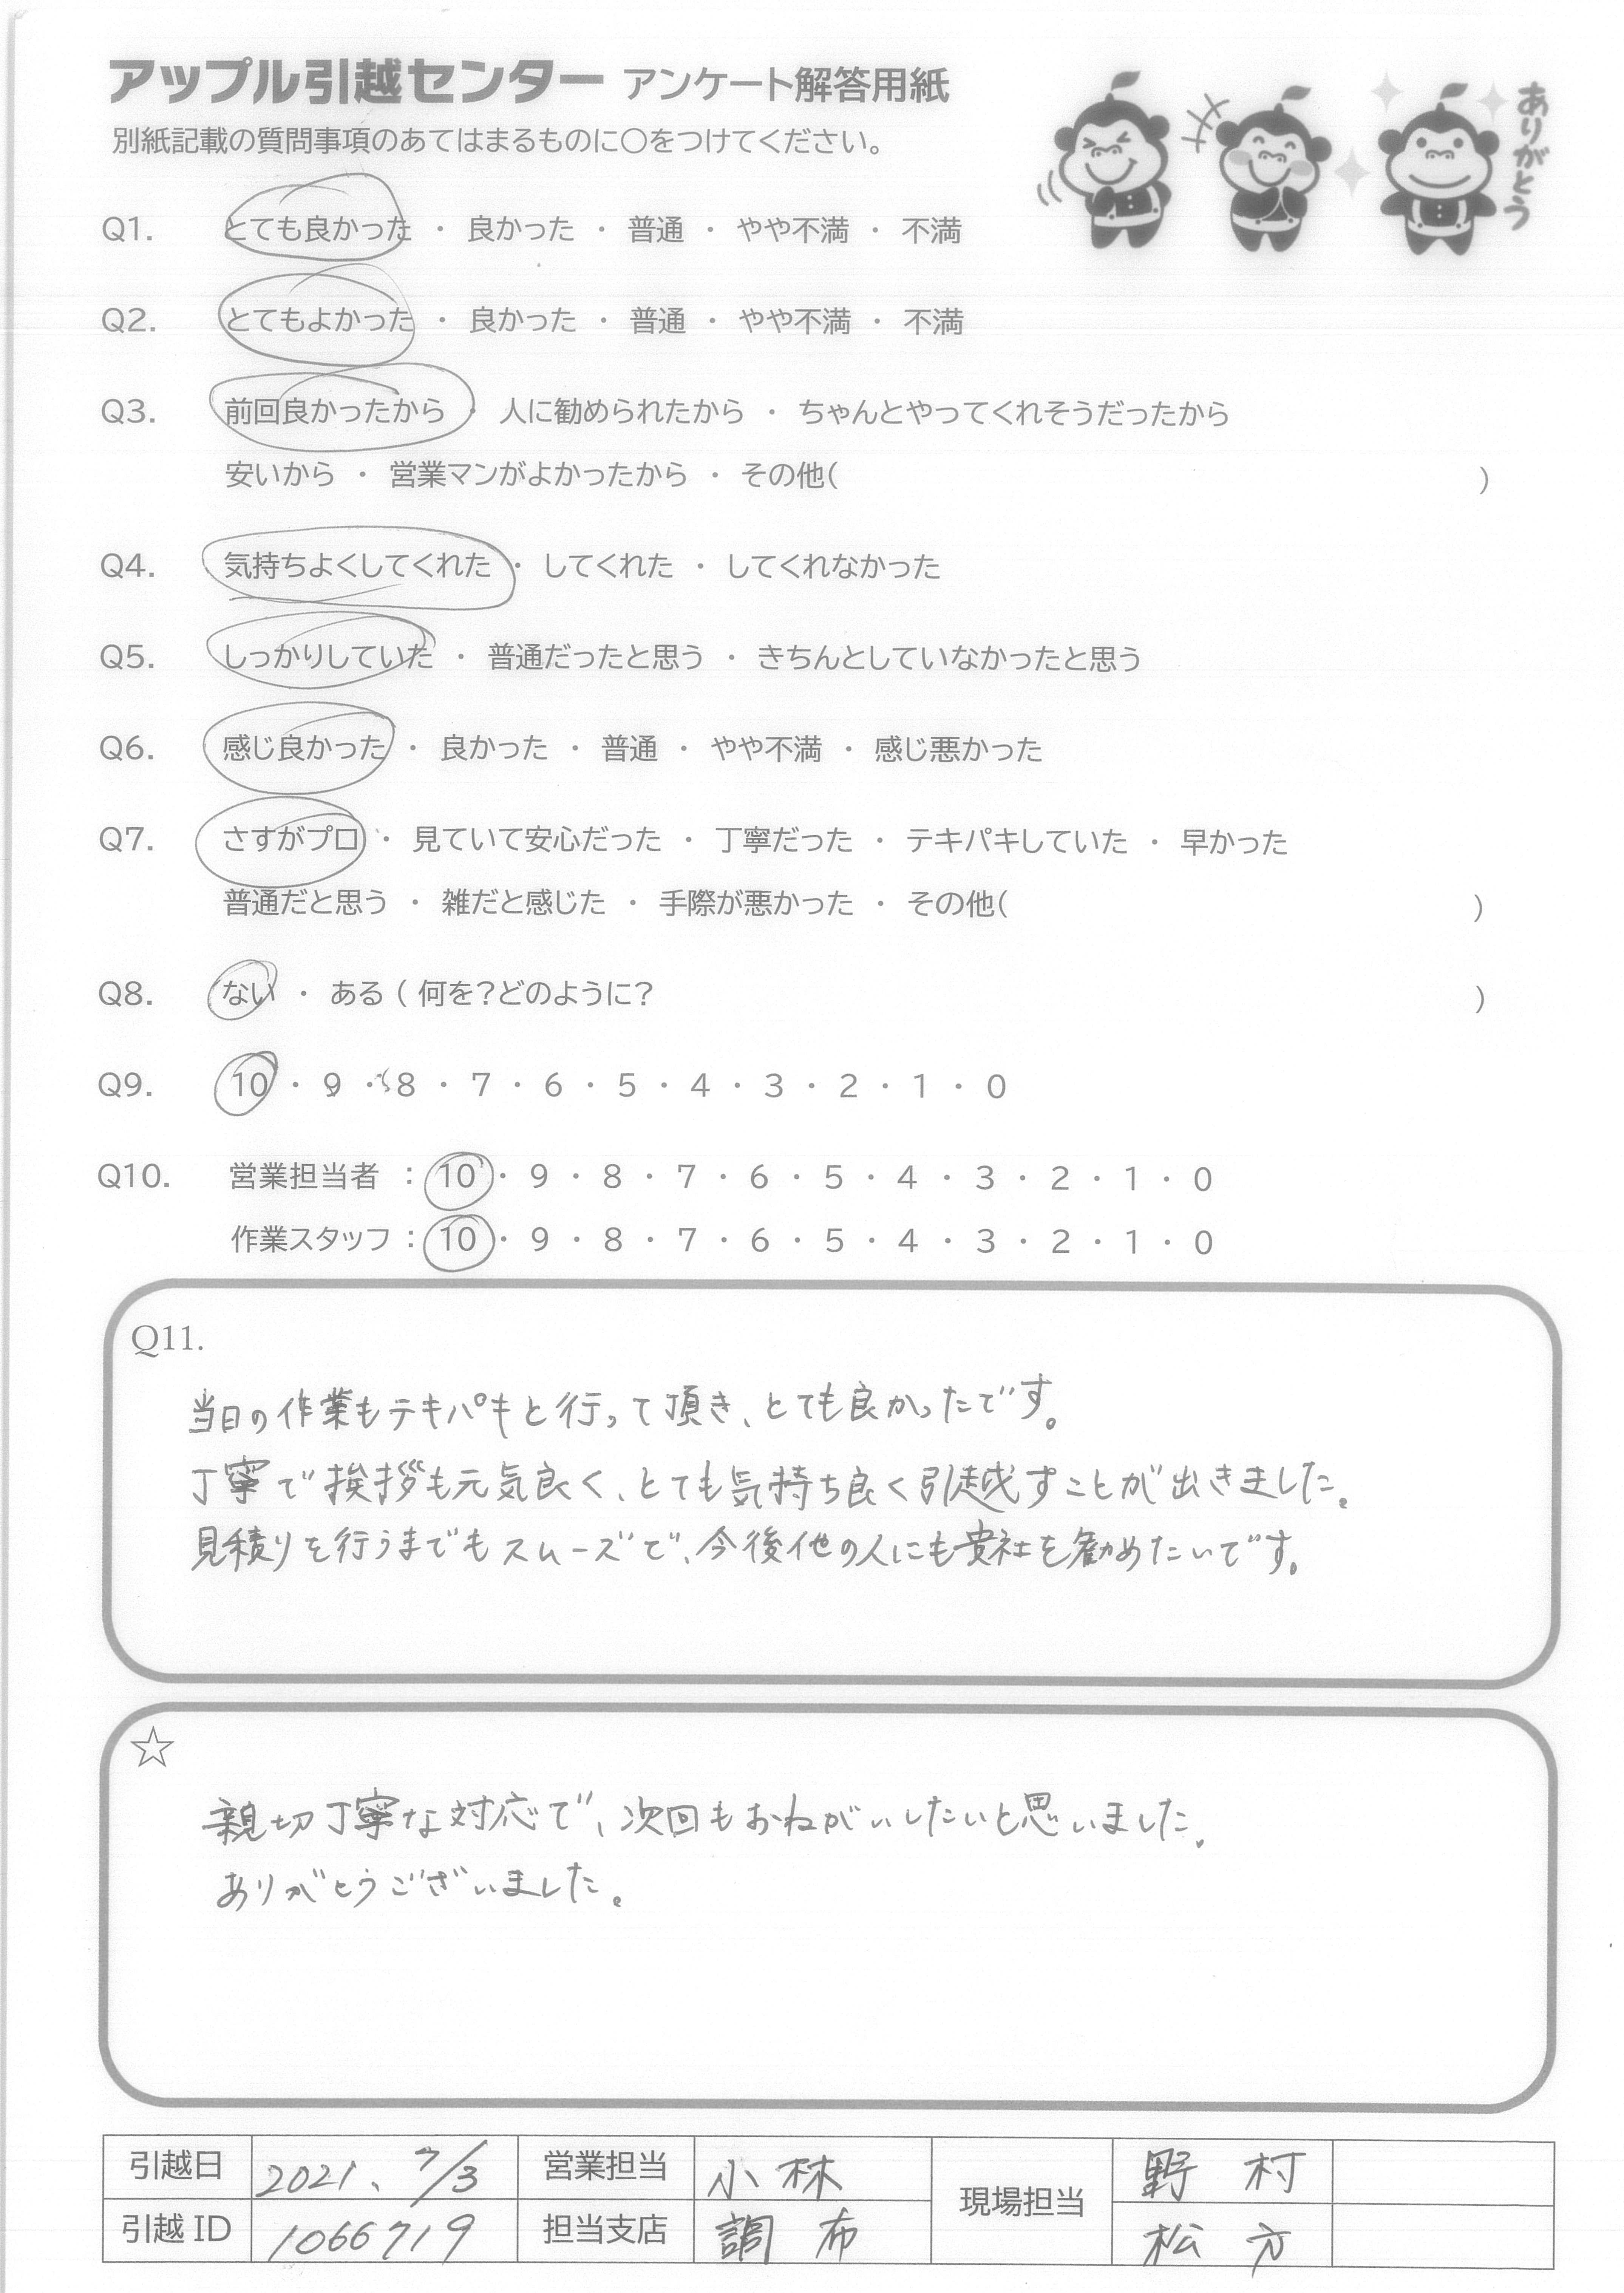 アップル引越センター アンケート解答用紙
別紙記載の質問事項のあてはまるものに○をつけてください。
ありがとう
Q1. とても良かった ・ 良かった ・ 普通 ・ やや不満 ・ 不満
Q2. とてもよかった ・ 良かった ・ 普通 ・ やや不満 ・ 不満
Q3. 前回良かったから ・ 人に勧められたから ・ ちゃんとやってくれそうだったから
安いから ・ 営業マンがよかったから ・ その他( )
Q4. 気持ちよくしてくれた ・ してくれた ・ してくれなかった
Q5. しっかりしていた ・ 普通だったと思う ・ きちんとしていなかったと思う
Q6. 感じ良かった ・ 良かった ・ 普通 ・ やや不満 ・ 感じ悪かった
Q7. さすがプロ ・ 見ていて安心だった ・ 丁寧だった ・ テキパキしていた ・ 早かった
普通だと思う ・ 雑だと感じた ・ 手際が悪かった ・ その他( )
Q8. ない ・ ある ( 何を?どのように? )
Q9. 10 ・ 9 ・ 8 ・ 7 ・ 6 ・ 5 ・ 4 ・ 3 ・ 2 ・ 1 ・ 0
Q10. 営業担当者 : 10 ・ 9 ・ 8 ・ 7 ・ 6 ・ 5 ・ 4 ・ 3 ・ 2 ・ 1 ・ 0
作業スタッフ : 10 ・ 9 ・ 8 ・ 7 ・ 6 ・ 5 ・ 4 ・ 3 ・ 2 ・ 1 ・ 0
Q11.
当日の作業もテキパキと行って頂き、とても良かったです。
丁寧で挨拶も元気良く、とても気持ち良く引越すことが出きました。
見積りを行うまでもスムーズで、今後他の人にも貴社を勧めたいです。
☆
親切丁寧な対応で、次回もおねがいしたいと思いました。
ありがとうございました。
引越日 2021、7/3 営業担当 小林 現場担当 野村
引越ID 1066719 担当支店 調布 松方